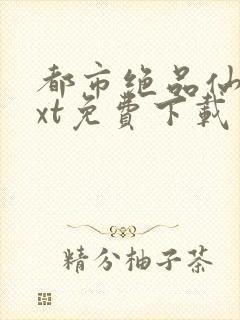 都市绝品仙
xt免費下載
精分柚子茶